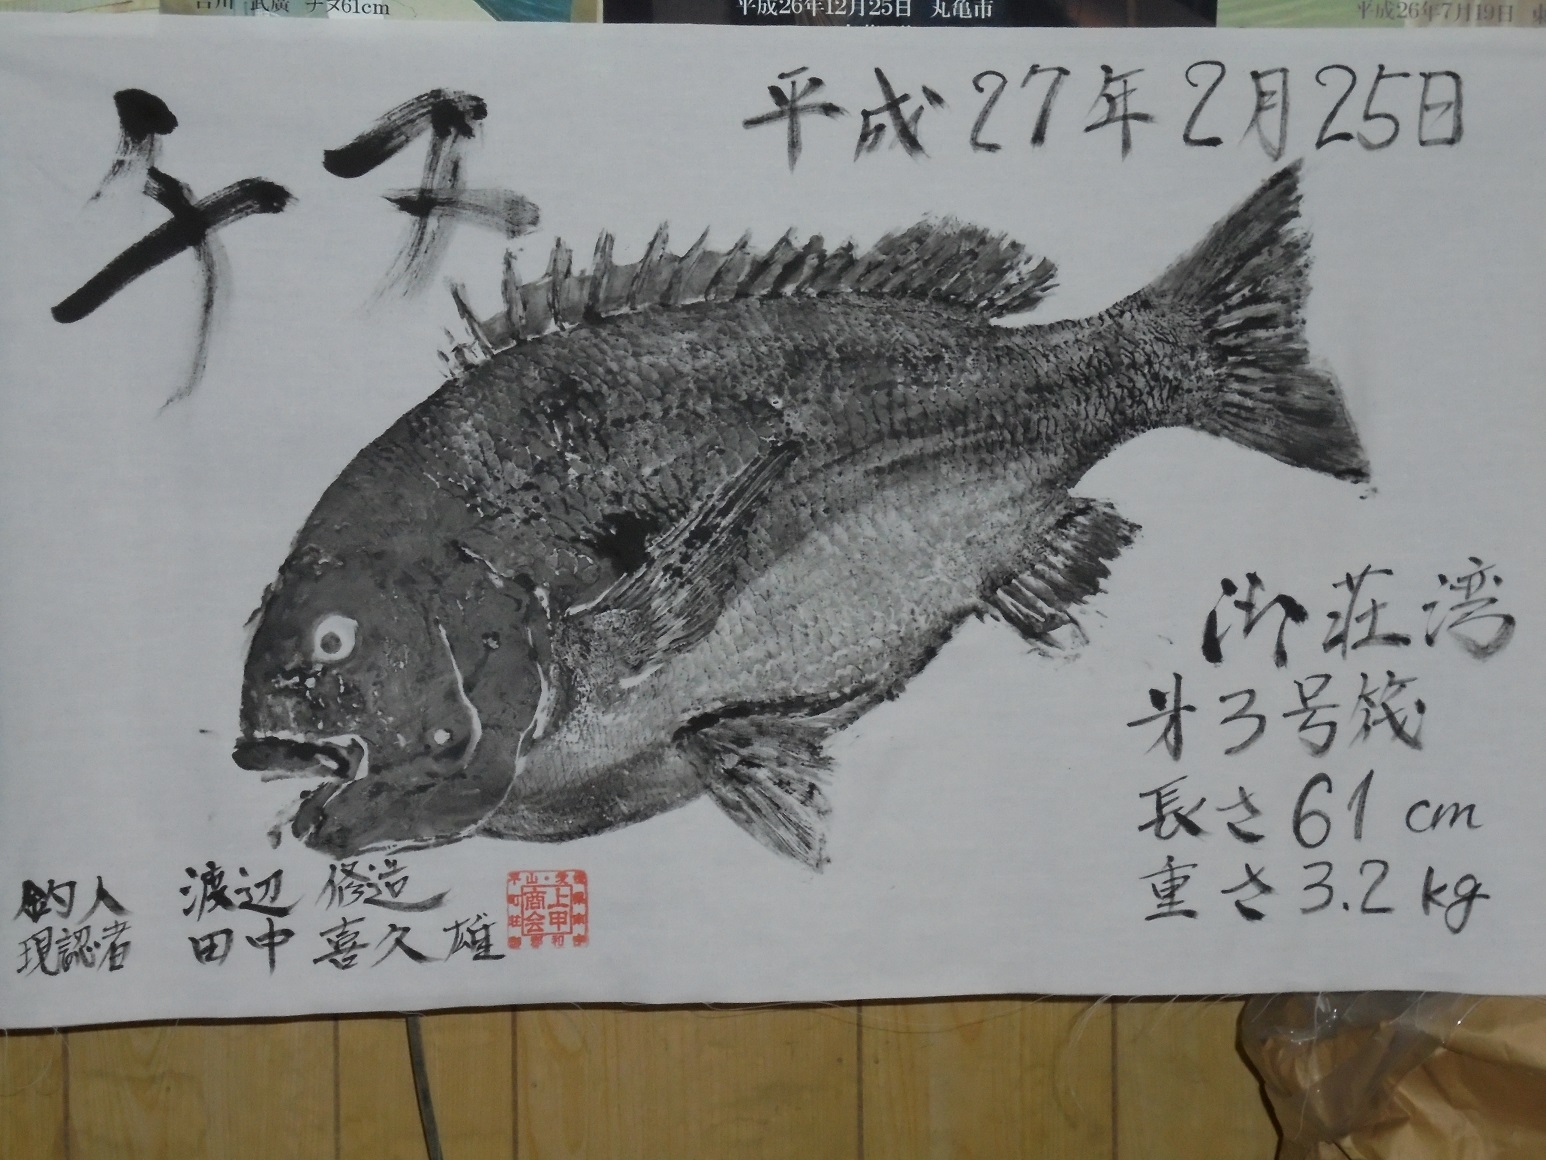 吉川 武廣 チヌ61cm
平成26年12月25日 丸亀市
平成26年7月19日
チヌ
平成27年2月25日
御荘湾
才3号筏
長さ61cm
重さ3.2kg
釣人 渡辺 修造
現認者 田中 喜久雄
上甲
商会